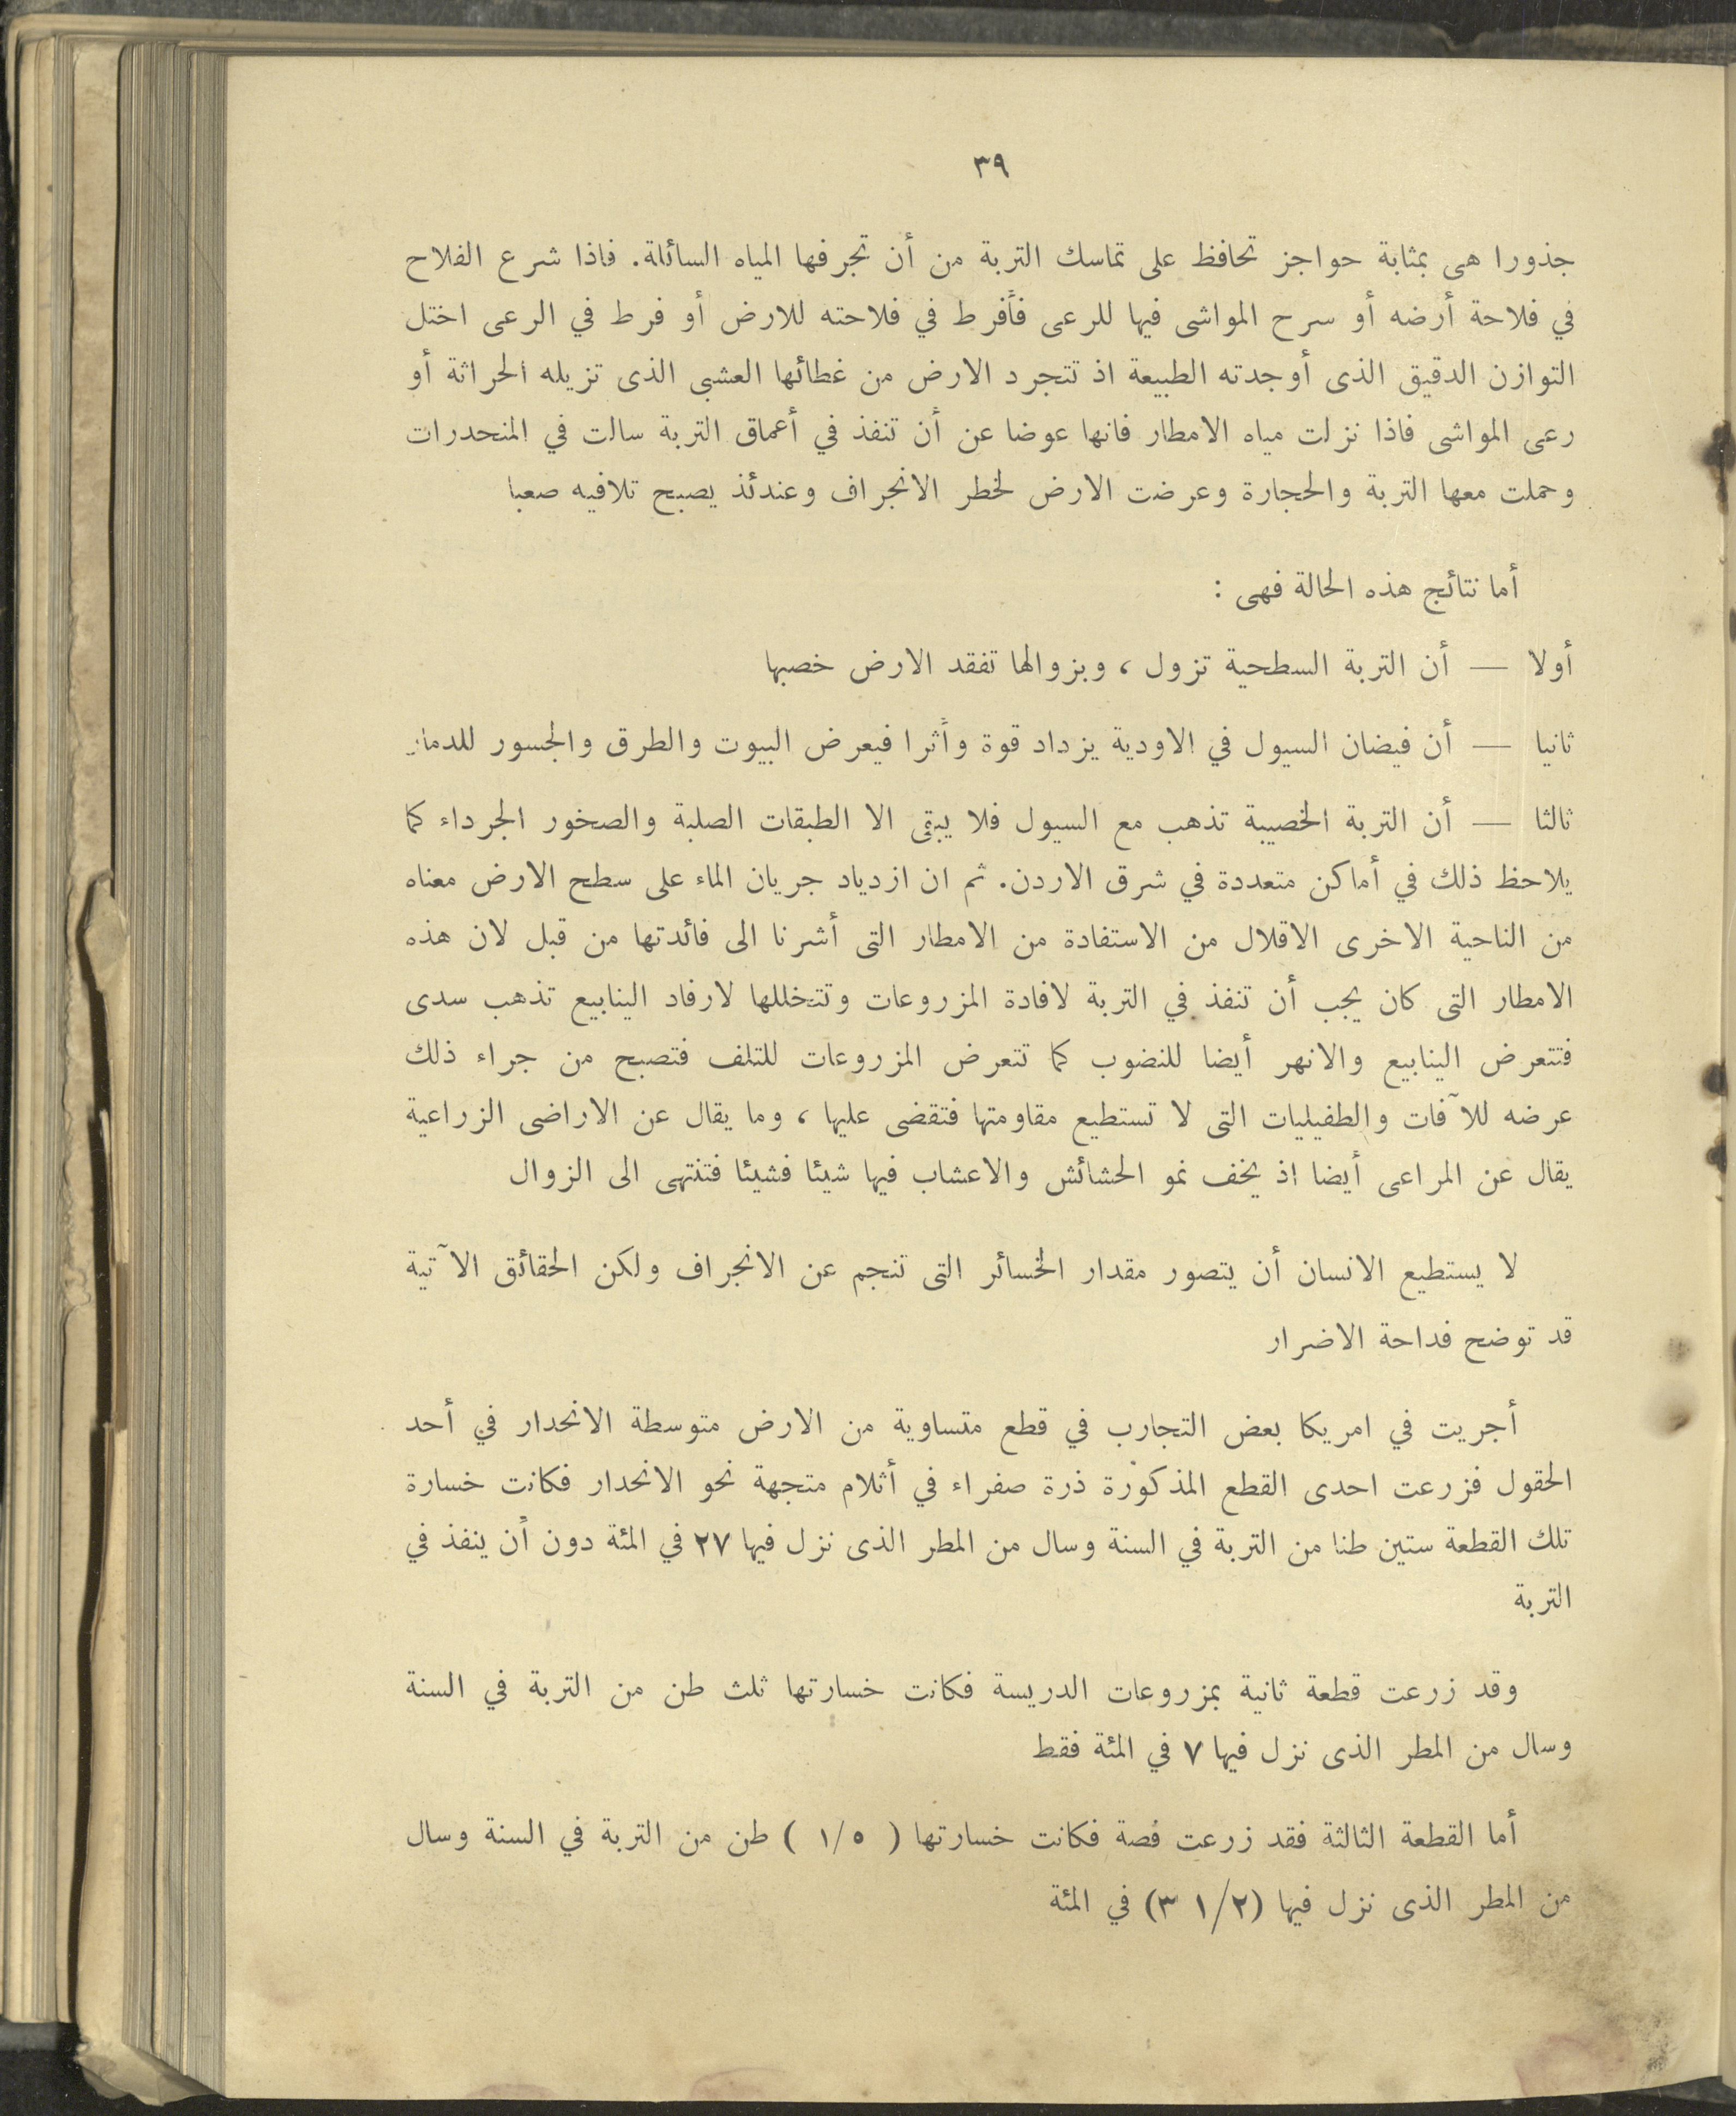 ٣٩
جذورا هى بمثابة حواجز تحافظ على تماسك التربة من أن تجرفها المياه السائلة. فاذا شرع الفلاح
في فلاحة أرضه أو سرح المواشى فيها للرعى فأفرط في فلاحته للارض أو فرط في الرعى اختل
التوازن الدقيق الذى أوجدته الطبيعة اذ تتجرد الارض من غطائها العشبى الذى تزيله الحراثة أو
رعى المواشى فاذا نزلت مياه الامطار فانها عوضا عن أن تنفذ في أعماق التربة سالت في المنحدرات
وحملت معها التربة والحجارة وعرضت الارض لخطر الانجراف وعندئذ يصبح تلافيه صعبا
أما نتائج هذه الحالة فهى :
أولا — أن التربة السطحية تزول ، وبزوالها تفقد الارض خصبها
ثانيا — أن فيضان السيول في الاودية يزداد قوة وأثرا فيعرض البيوت والطرق والجسور للدمار
ثالثا — أن التربة الخصيبة تذهب مع السيول فلا يبقى الا الطبقات الصلبة والصخور الجرداء كما
يلاحظ ذلك في أماكن متعددة في شرق الاردن. ثم ان ازدياد جريان الماء على سطح الارض معناه
من الناحية الاخرى الاقلال من الاستفادة من الامطار التى أشرنا الى فائدتها من قبل لان هذه
الامطار التى كان يجب أن تنفذ في التربة لافادة المزروعات وتتخللها لارفاد الينابيع تذهب سدى
فتتعرض الينابيع والانهر أيضا للنضوب كما تتعرض المزروعات للتلف فتصبح من جراء ذلك
عرضه للآفات والطفيليات التى لا تستطيع مقاومتها فتقضى عليها ، وما يقال عن الاراضى الزراعية
يقال عن المراعى أيضا اذ يخف نمو الحشائش والاعشاب فيها شيئا فشيئا فتنتهى الى الزوال
لا يستطيع الانسان أن يتصور مقدار الخسائر التى تنجم عن الانجراف ولكن الحقائق الآتية
قد توضح فداحة الاضرار
أجريت في امريكا بعض التجارب في قطع متساوية من الارض متوسطة الانحدار في أحد
الحقول فزرعت احدى القطع المذكورة ذرة صفراء في أثلام متجهة نحو الانحدار فكانت خسارة
تلك القطعة ستين طنا من التربة في السنة وسال من المطر الذى نزل فيها ٢٧ في المئة دون أن ينفذ في
التربة
وقد زرعت قطعة ثانية بمزروعات الدريسة فكانت خسارتها ثلث طن من التربة في السنة
وسال من المطر الذى نزل فيها ٧ في المئة فقط
أما القطعة الثالثة فقد زرعت فصة فكانت خسارتها ( ١/٥ ) طن من التربة في السنة وسال
من المطر الذى نزل فيها (٣ ١/٢) في المئة